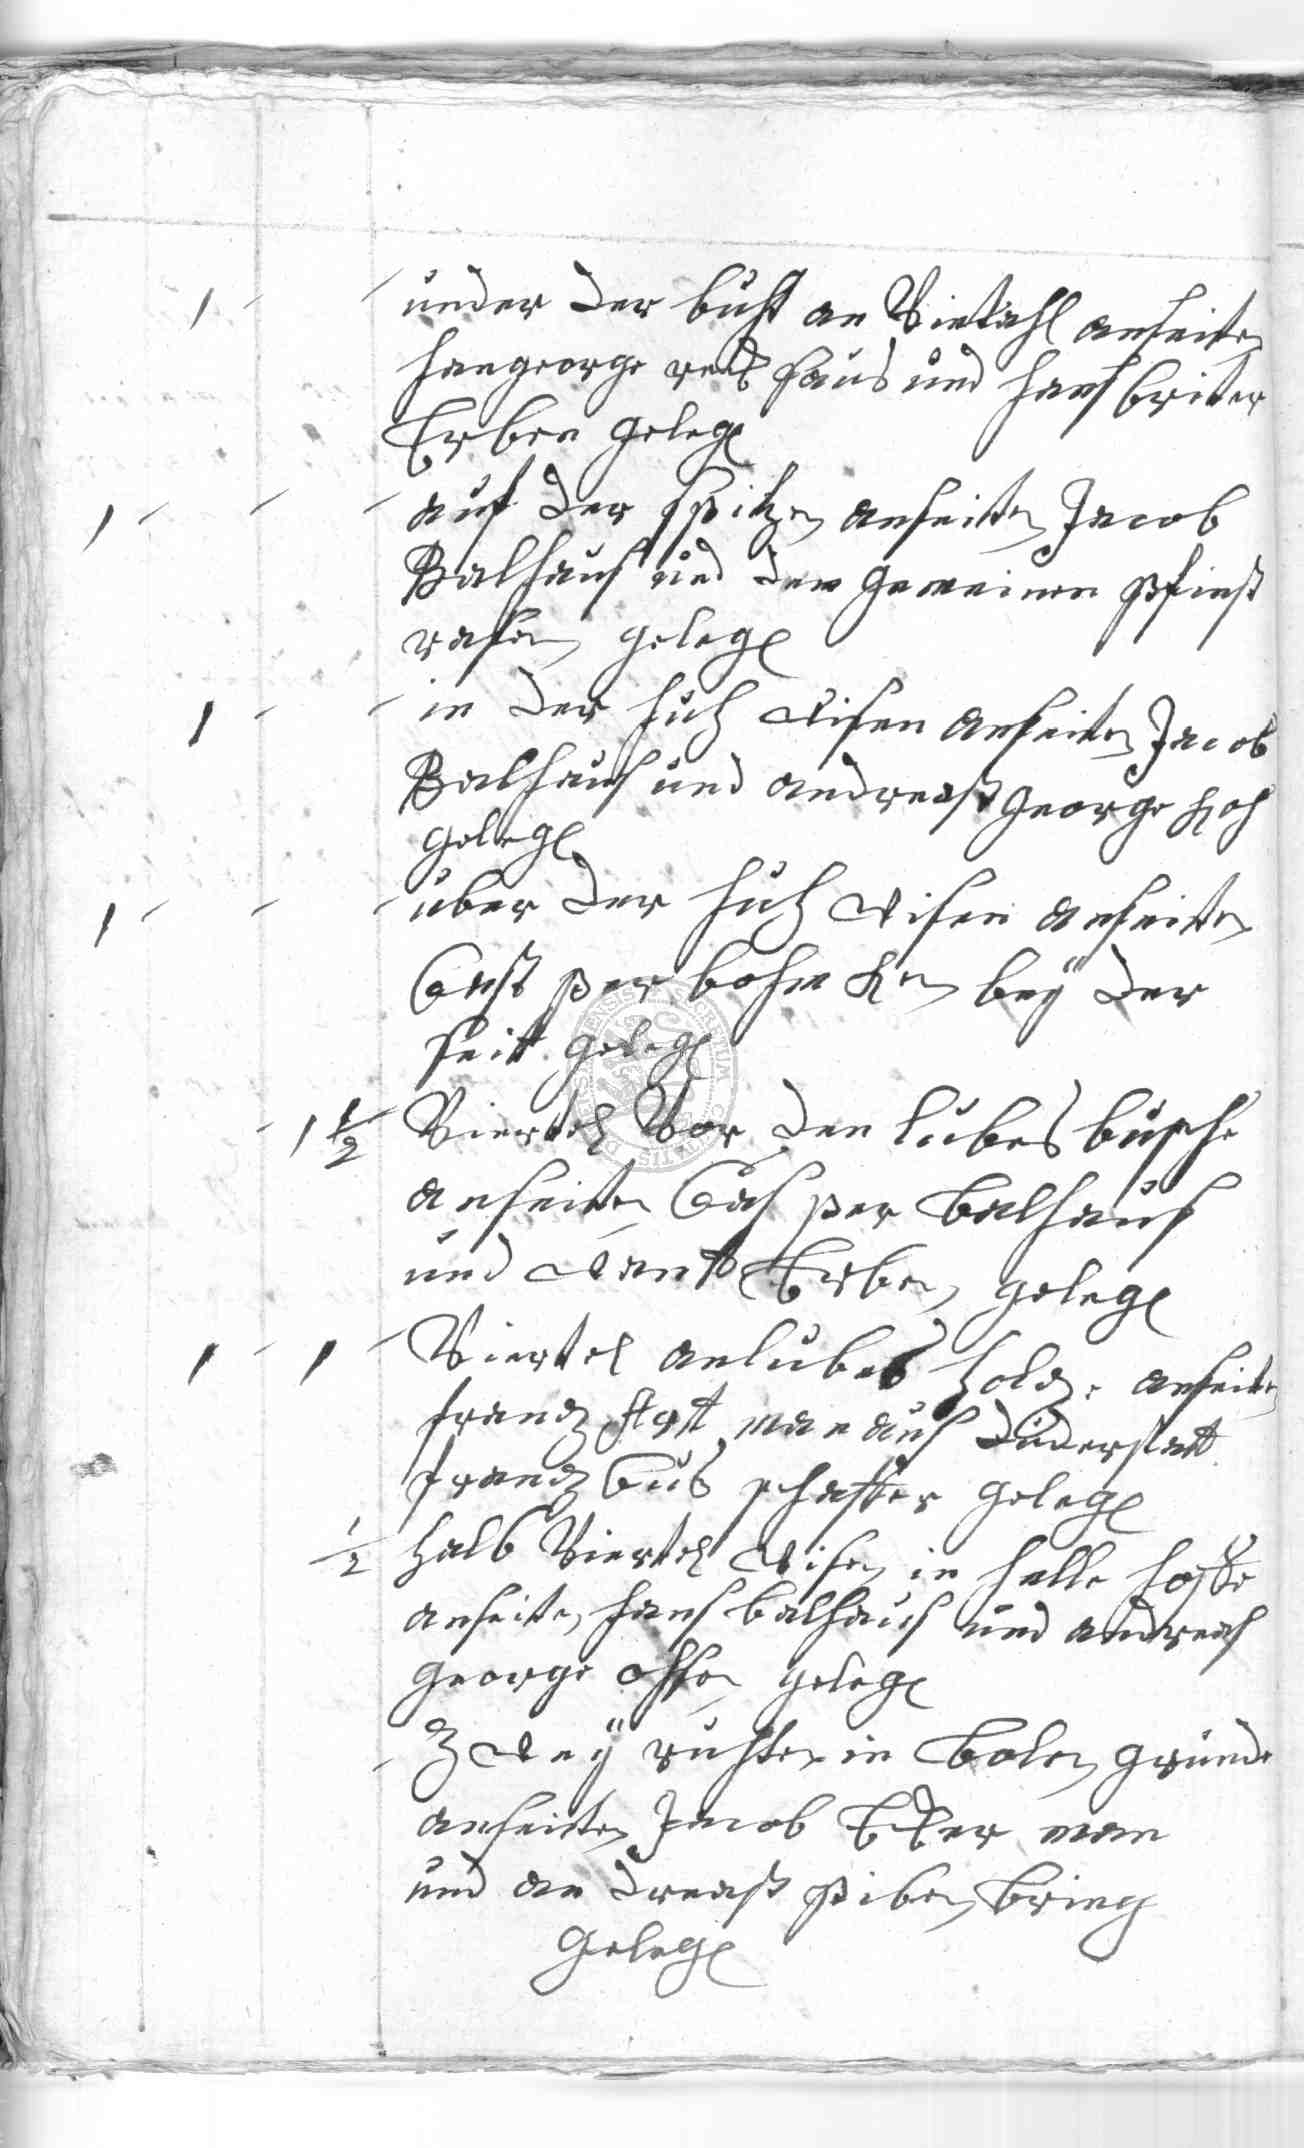 1 - - under der buhst an Vietahl anseiten
hangeorge reds haus und hans briter
Erben gelegen
1 - - - auf der spitzen anseiten Jacob
Balhaus und der gemeinen pfinst
rasen gelegen
1 - - in der hutz wisen anseiten Jacob
Balhaus und andreast george Koh
gelegen
1 - - - uber der hutz wisen anseiten
Cast per bohm bey der
seit gelegen
- 1 1/2 Viertel Vor den lubes busche
anseiten Cas per Balhaus
und Erben gelegen
1 - 1 Viertel an lubes holdz anseiten
frandz man aus Duderstatt
frandz schaffer gelegen
1/2 halb Viertel Wisen in helle
anseiten hans balhaus und andreas
george gelegen
- Zwey ruhten in Bolen grunde
anseiten Jacob Eker man
und an dreast siben Bring
gelegen